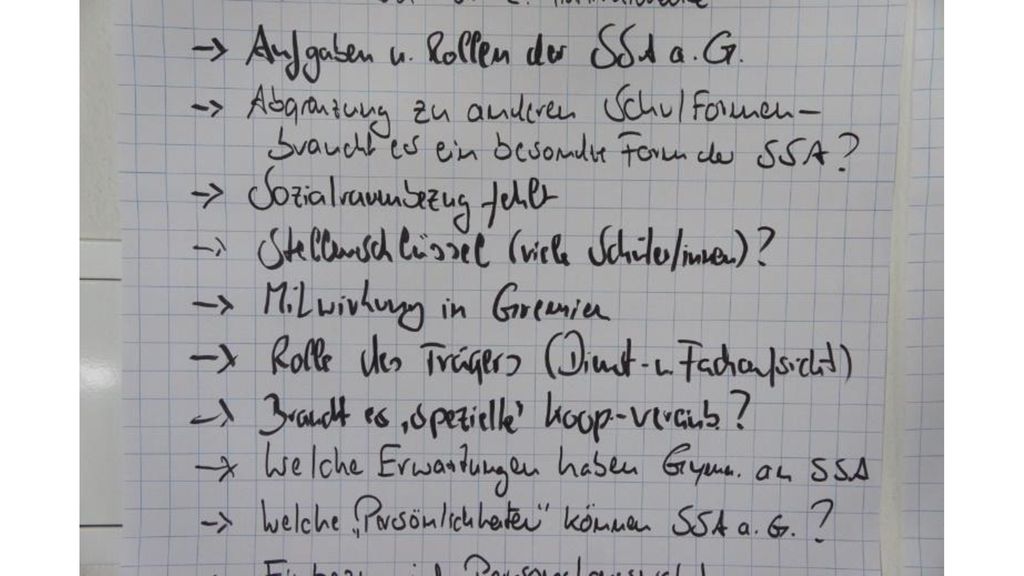 → Aufgaben u. Rollen der SSA a. G.
→ Abgrenzung zu anderen Schulformen –
braucht es ein besondere Form der SSA?
→ Sozialraumbezug fehlt
→ Stellenschlüssel (viele Schüler/innen)?
→ Mitwirkung in Gremien
→ Rolle des Trägers (Dienst- u Fachaufsicht)
→ Braucht es ‚spezielle' Koop-Vereinb.?
→ Welche Erwartungen haben Gymn. an SSA
→ Welche „Persönlichkeiten" können SSA a. G.?